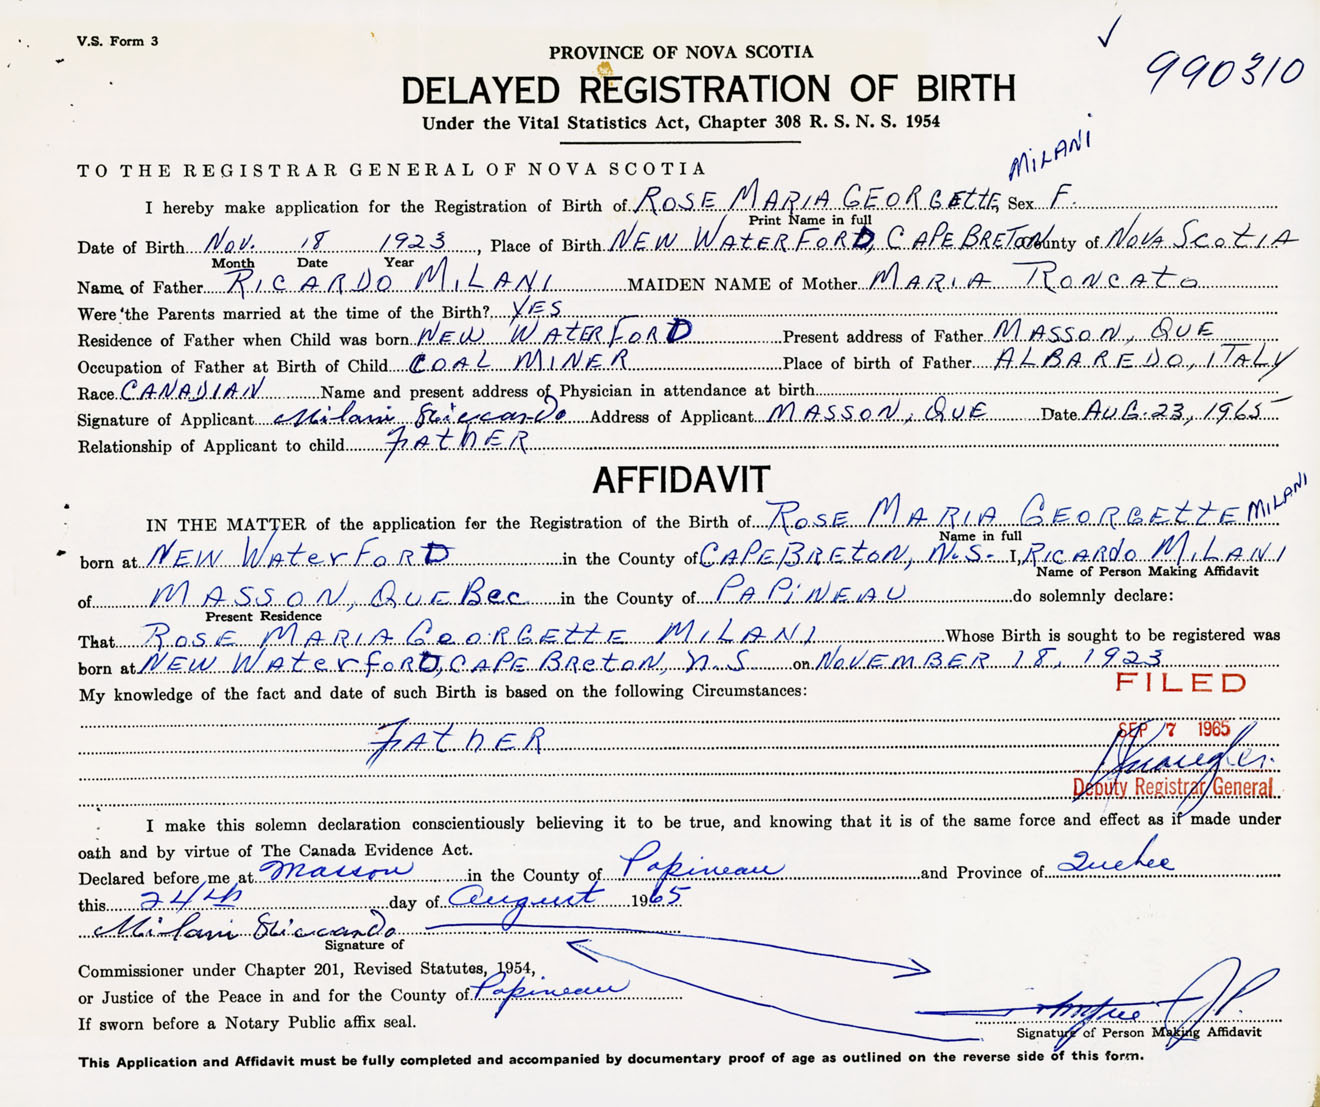 V.S. Form 3
990310
PROVINCE OF NOVA SCOTIA
DELAYED REGISTRATION OF BIRTH
Under the Vital Statistics Act, Chapter 308 R. S. N. S. 1954
TO THE REGISTRAR GENERAL OF NOVA SCOTIA
MILANI
I hereby make application for the Registration of Birth of ROSE MARIA GEORGETTE Sex F.
Print Name in full
Date of Birth Nov. 18 1923, Place of Birth NEW WATERFORD, CAPE BRETON County of NOVA SCOTIA
Month Date Year
Name of Father RICARDO MILANI MAIDEN NAME of Mother MARIA RONCATO
Were the Parents married at the time of the Birth? YES
Residence of Father when Child was born NEW WATERFORD Present address of Father MASSON, QUE
Occupation of Father at Birth of Child COAL MINER Place of birth of Father ALBAREDO, ITALY
Race CANADIAN Name and present address of Physician in attendance at birth
Signature of Applicant Milani Riccardo Address of Applicant MASSON, QUE Date AUG. 23, 1965
Relationship of Applicant to child FATHER
AFFIDAVIT
IN THE MATTER of the application for the Registration of the Birth of ROSE MARIA GEORGETTE MILANI
Name in full
born at NEW WATERFORD in the County of CAPE BRETON, N.S. I, RICARDO MILANI
Name of Person Making Affidavit
of MASSON, QUEBEC in the County of PAPINEAU do solemnly declare:
Present Residence
That ROSE MARIA GEORGETTE MILANI Whose Birth is sought to be registered was
born at NEW WATERFORD, CAPE BRETON, N.S on NOVEMBER 18, 1923
My knowledge of the fact and date of such Birth is based on the following Circumstances:
FILED
FATHER
SEP 7 1965
Deputy Registrar General
I make this solemn declaration conscientiously believing it to be true, and knowing that it is of the same force and effect as if made under
oath and by virtue of The Canada Evidence Act.
Declared before me at Masson in the County of Papineau and Province of Quebec
this 24th day of August 1965
Milani Riccardo
Signature of
Commissioner under Chapter 201, Revised Statutes, 1954,
or Justice of the Peace in and for the County of Papineau
If sworn before a Notary Public affix seal.
J.P.
Signature of Person Making Affidavit
This Application and Affidavit must be fully completed and accompanied by documentary proof of age as outlined on the reverse side of this form.